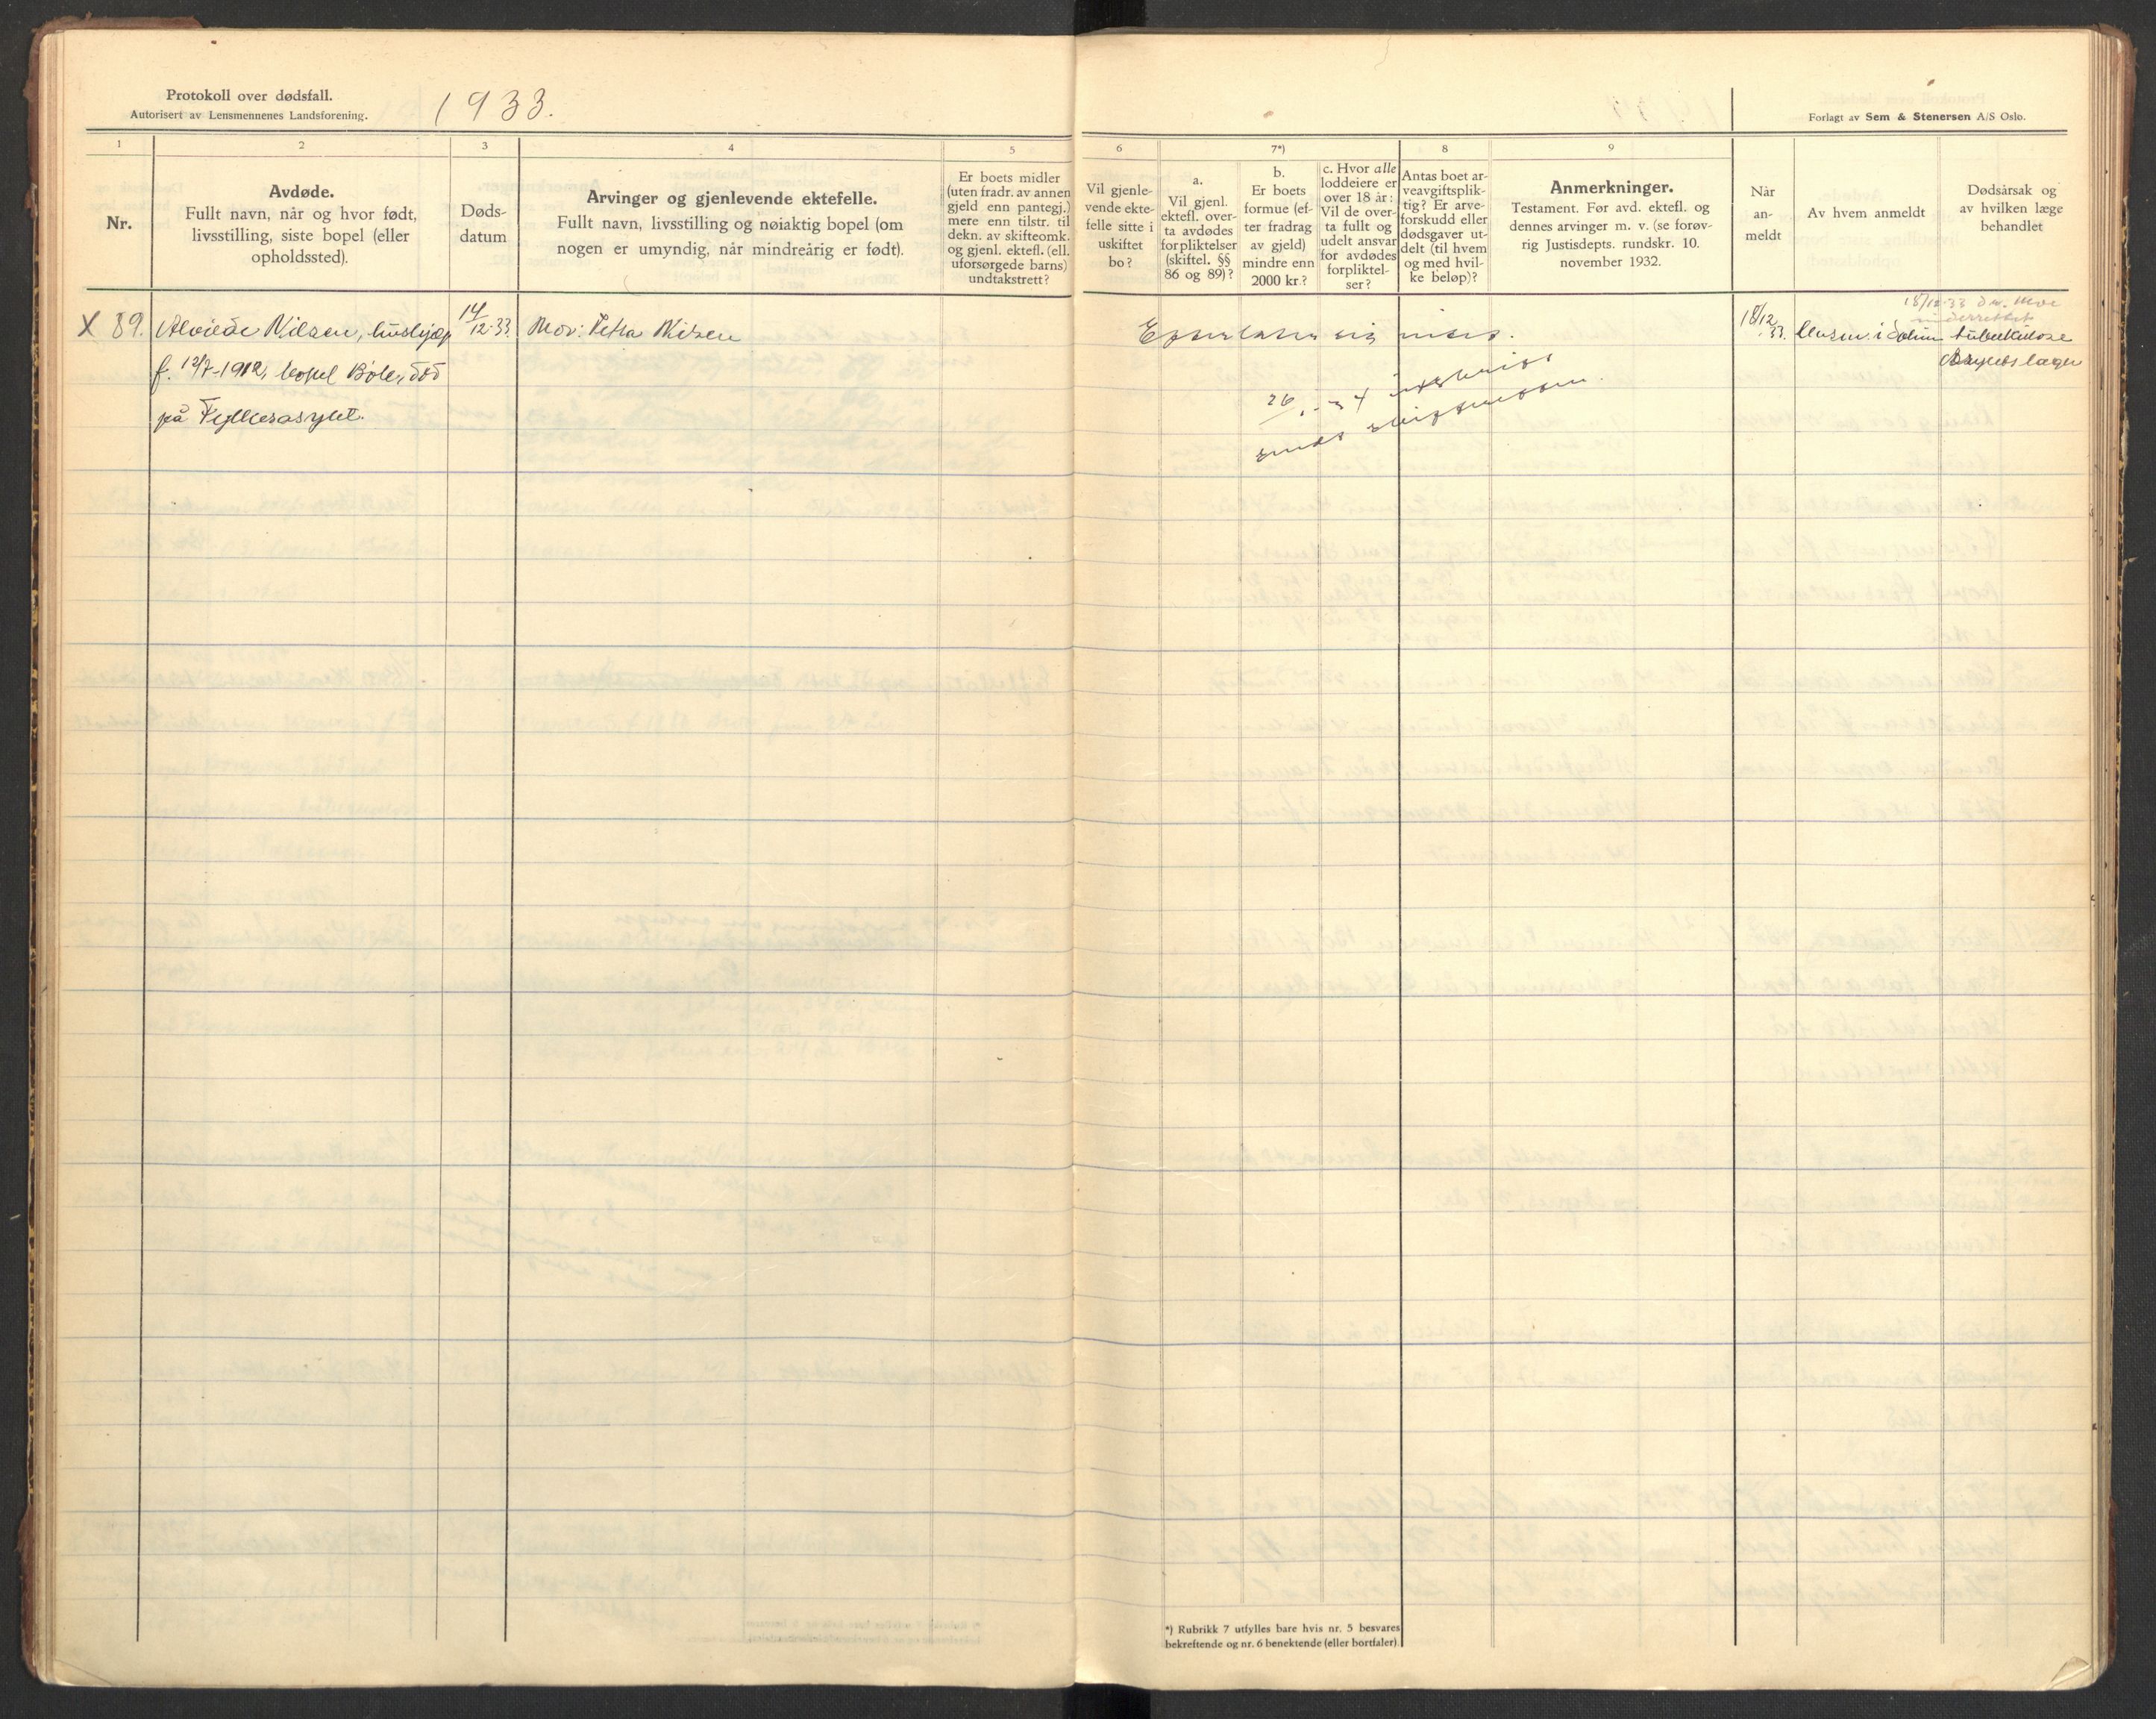 Protokoll over dødsfall.
Autorisert av Lensmennenes Landsforening.
1933.
Forlagt av Sem & Stenersen A/S Oslo.
1
2
3
4
5
6
7*)
8
9
Nr.
Avdøde.
Fullt navn, når og hvor født,
livsstilling, siste bopel (eller
opholdssted).
Døds-
datum
Arvinger og gjenlevende ektefelle.
Fullt navn, livsstilling og nøiaktig bopel (om
nogen er umyndig, når mindreårig er født).
Er boets midler
(uten fradr. av annen
gjeld enn pantegj.)
mere enn tilstr. til
dekn. av skifteomk.
og gjenl. ektefl. (ell.
uforsørgede barns)
undtakstrett?
Vil gjenle-
vende ekte-
felle sitte i
uskiftet
bo?
a.
Vil gjenl.
ektefl. over-
ta avdødes
forpliktelser
(skiftel. §§
86 og 89)?
b.
Er boets
formue (ef-
ter fradrag
av gjeld)
mindre enn
2000 kr.?
c. Hvor alle
loddeiere er
over 18 år:
Vil de over-
ta fullt og
udelt ansvar
for avdødes
forpliktel-
ser?
Antas boet ar-
veavgiftsplik-
tig? Er arve-
forskudd eller
dødsgaver ut-
delt (til hvem
og med hvil-
ke beløp)?
Anmerkninger.
Testament. Før avd. ektefl. og
dennes arvinger m. v. (se forøv-
rig Justisdepts. rundskr. 10.
november 1932.
Når
an-
meldt
Av hvem anmeldt
Dødsårsak og
av hvilken læge
behandlet
X 89. Alvilde Nilsen, hushjelp
f. 12/7-1912, bopel Böle, död
på Fylkesasylet.
14/12-33.
Mor: Petra Nilsen
Efterlater sig intet.
26/1-34 utskrift
sendt skifteretten.
18/12 33.
Lensm. i Solum
18/12-33
underrettet
tuberkulose
Asylets læge
*) Rubrikk 7 utfylles bare hvis nr. 5 besvares
bekreftende og nr. 6 benektende (eller bortfaler)